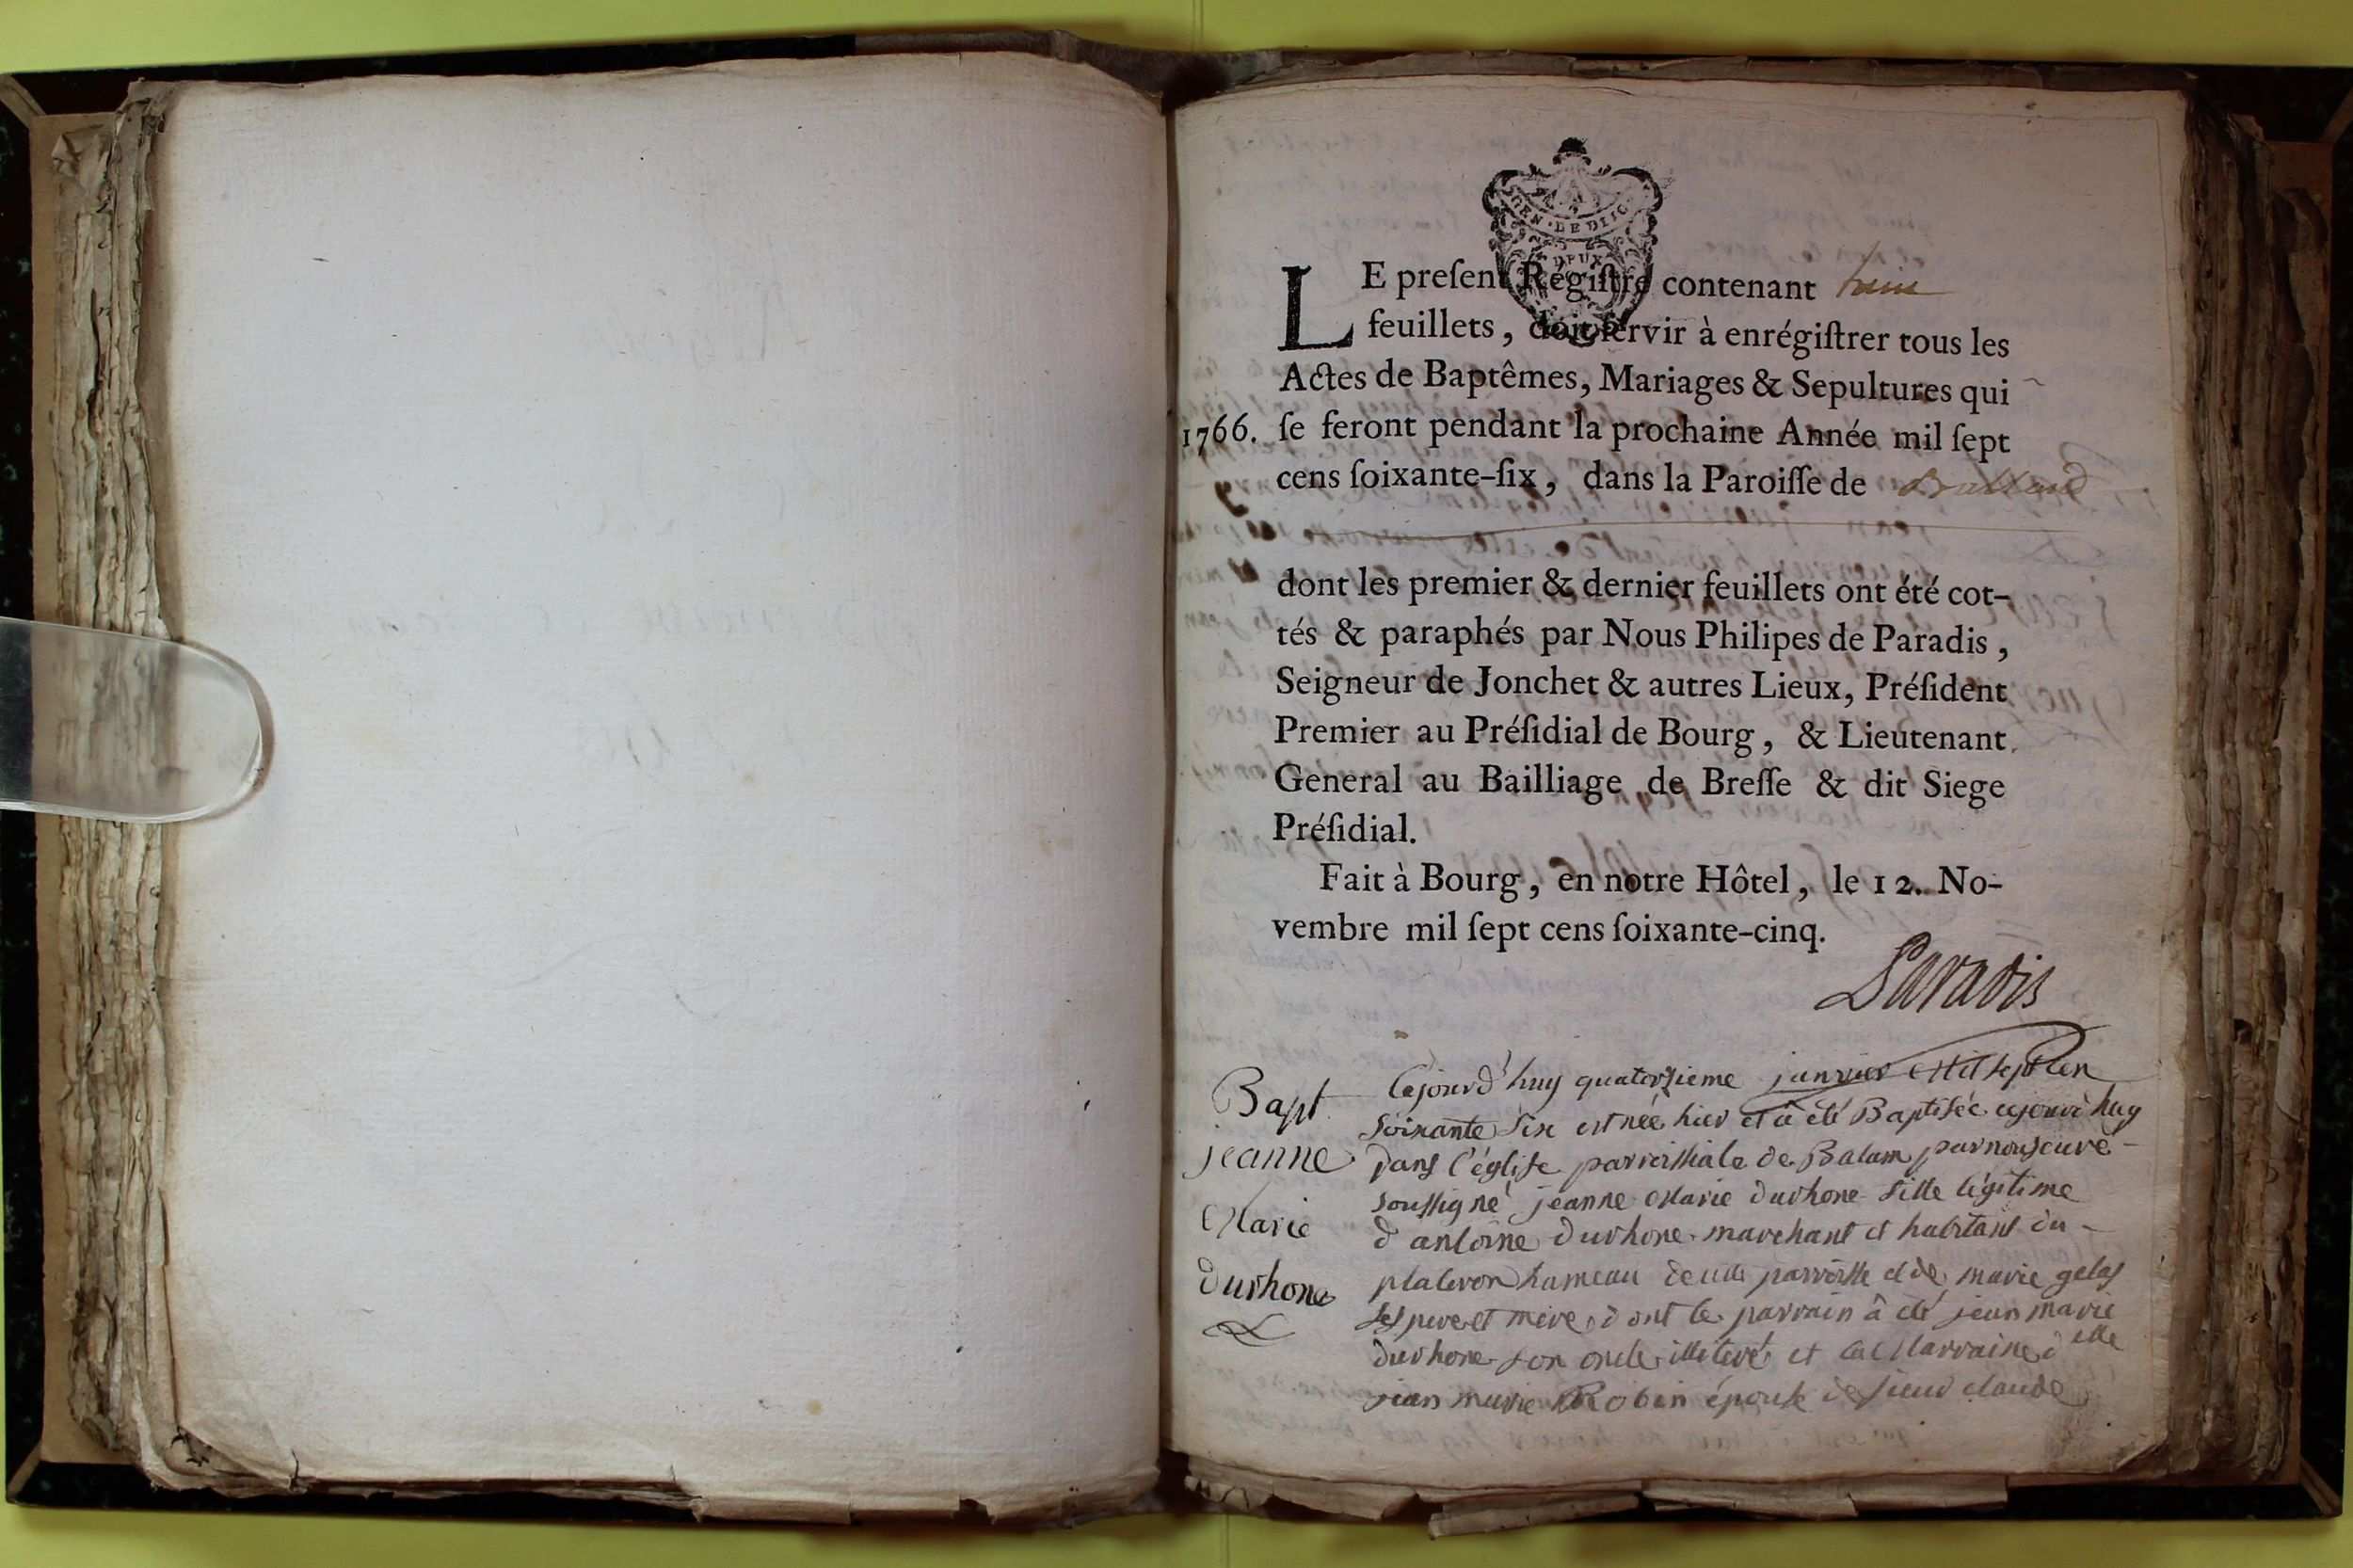 GEN · LE DIJO
DEUX
LE preſent Régiſtre contenant
feuillets, doit ſervir à enrégiſtrer tous les
Actes de Baptêmes, Mariages & Sepultures qui
1766. ſe feront pendant la prochaine Année mil ſept
cens ſoixante-ſix, dans la Paroiſſe de
dont les premier & dernier feuillets ont été cot-
tés & paraphés par Nous Philipes de Paradis,
Seigneur de Jonchet & autres Lieux, Préſident
Premier au Préſidial de Bourg, & Lieutenant
General au Bailliage de Breſſe & dit Siege
Préſidial.
Fait à Bourg, en notre Hôtel, le 12. No-
vembre mil ſept cens ſoixante-cinq.
Paradis
Bapt
jeanne
Marie
durhone
Cejourd'huy quatorzieme janvier Mil sept cen
soixante six est née hier et a été Baptisée cejourd'huy
dans l'église parroissiale de Balam par nous curé
soussigné jeanne Marie durhone fille légitime
d'antoine durhone marchant et habitant du
platevon hameau de cette parroisse et de marie gelas
ses pere et mere dont le parrain â été jean marie
durhone son oncle illiteré et la Marraine delle
jean marie Robin épouse de sieur claude